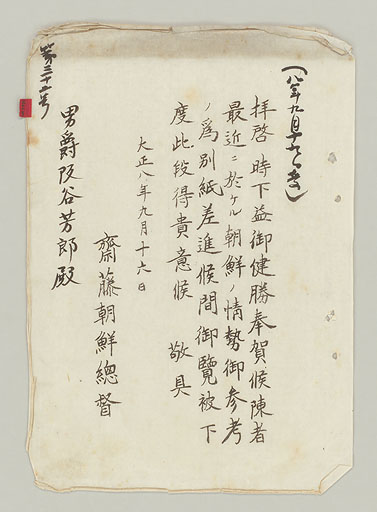 (八年九月十七日
拝啓時下益御健勝奉賀候陳者
最近ニ於ケル朝鮮ノ情勢御参考
ノ為別紙差進候間御覧被下
度此段得貴意候 敬具
大正八年九月十六日
齋藤朝鮮總督
男爵阪谷芳郎殿